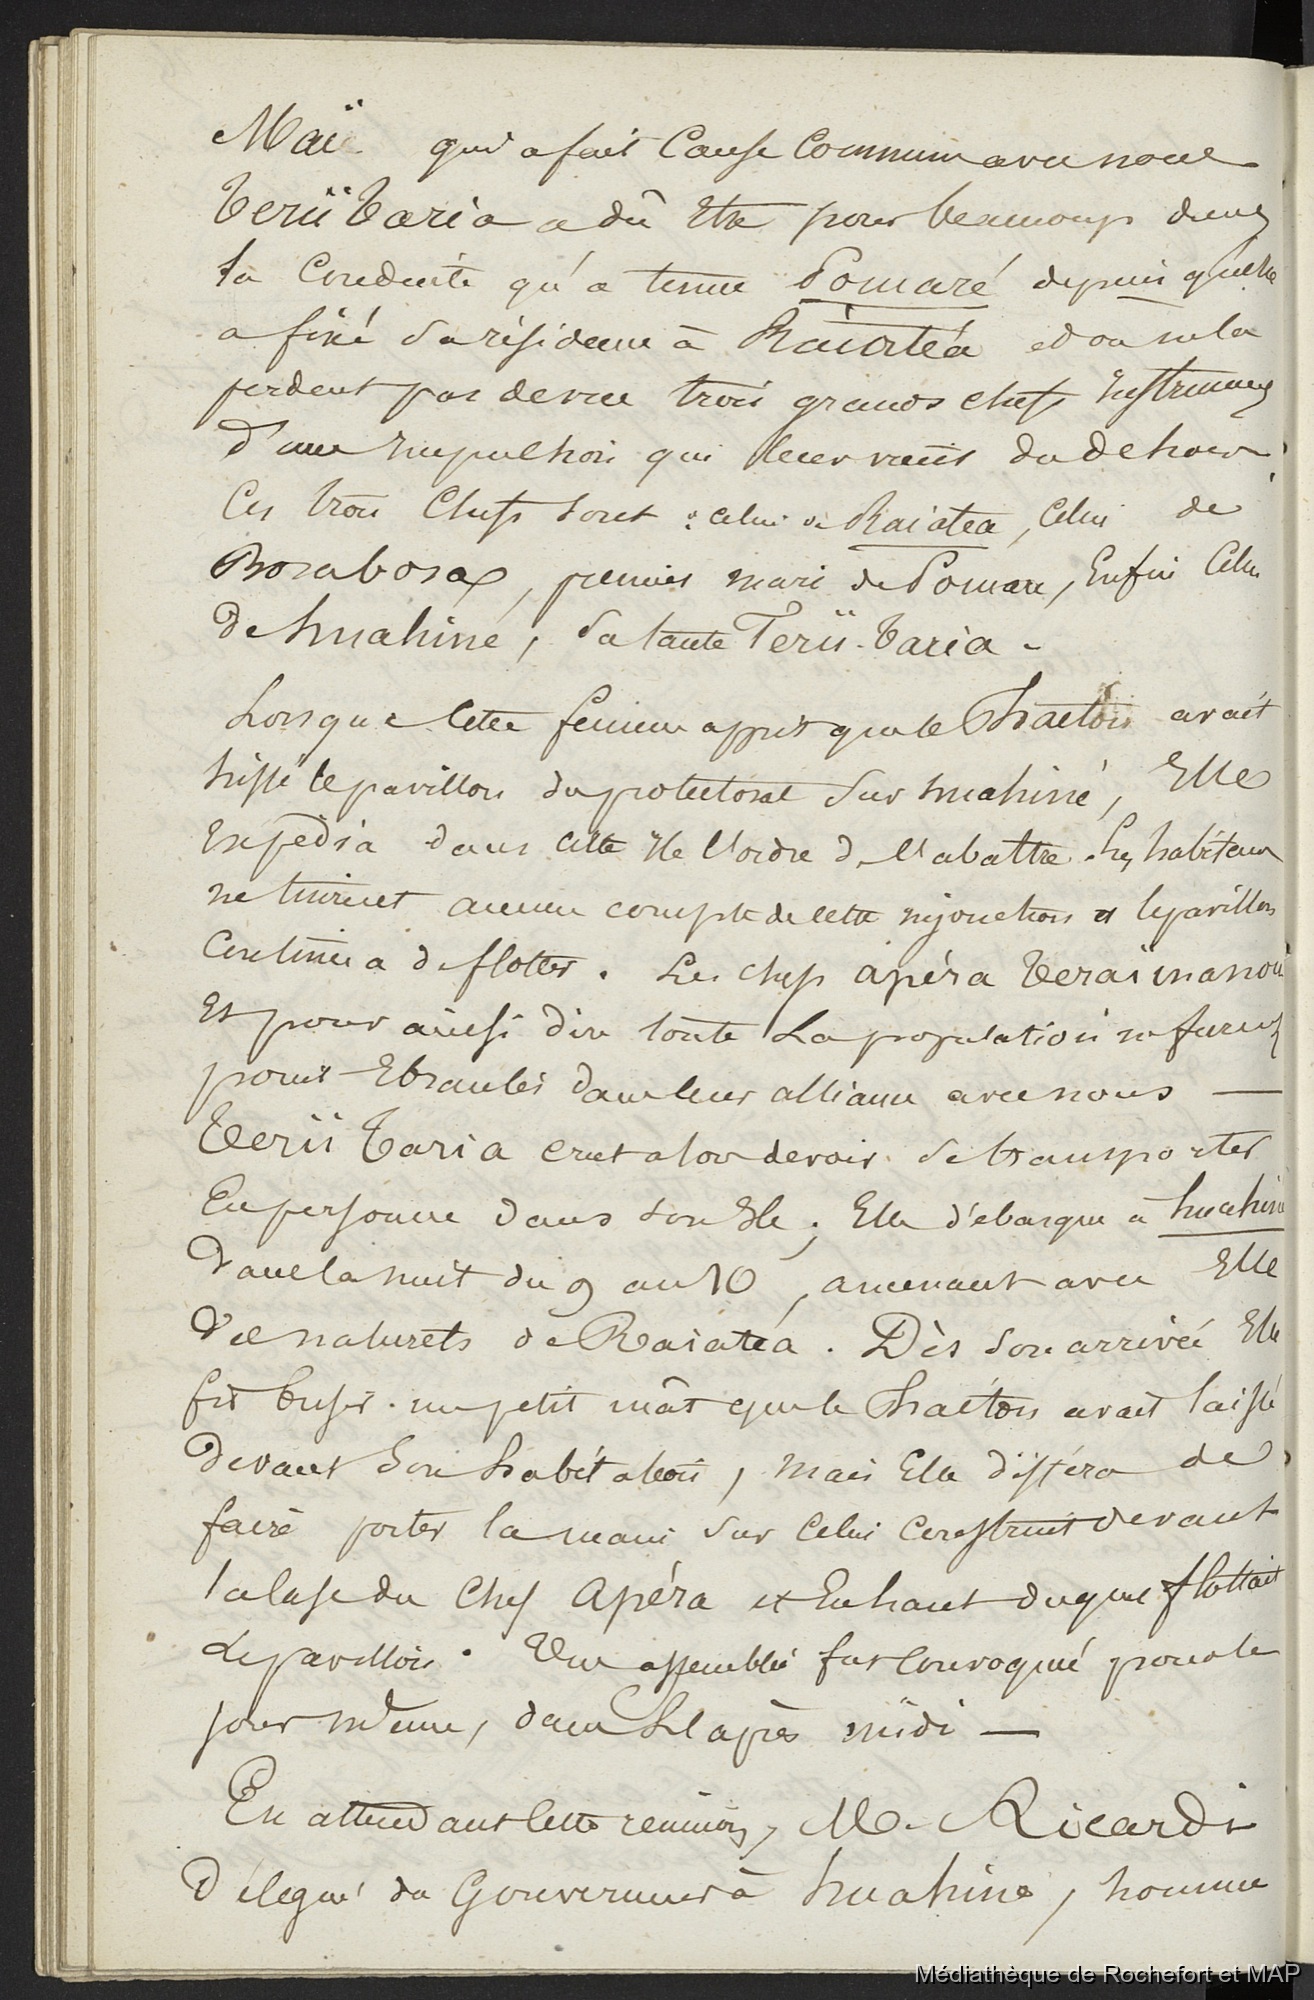 Maï qui a fait Cause Commune avec nous
Teriï Taria a dû Etre pour beaucoup dans
la Conduite qu'a tenue Pomaré depuis qu'elle
a fixé sa résidence à Raiatéa et on ne la
perdent pas de vue trois grands chefs Instruments
d'une Impulsion qui leur vient du dehors.
Ces trois Chefs sont : celui de Raiatea, Celui de
Borabora, premier mari de Pomare, Enfin Celui
de huahine, sa tante Teriï-Taria -
Lorsque Cette femme apprit que le Phaéton avait
hissé le pavillon du protectorat sur huahiné, Elle
Expédia dans cette Ile l'ordre de l'abattre. Les habitans
ne tinrent aucun compte de cette injonction et le pavillon
Continua de flotter. Les chefs apéra Teraïmanou
Et pour ainsi dire toute La population ne furent
point Ebranlés dans leur alliance avec nous —
Teriï Taria crut alors devoir se transporter
En personne dans son Ile ; Elle débarqua à huahine
Dans la nuit du 9 au 10, amenant avec Elle
des naturels de Raiatéa. Dès son arrivée Elle
fit briser un petit mât que le Phaéton avait laissé
devant son habitation, mais Elle différa de
faire porter la main sur Celui Construit devant
la Case du Chef Apéra et En haut duquel flottait
Le pavillon. Une assemblée fut Convoquée pour le
jour même, dans L'après midi —
En attendant Cette réunion, M. Ricardi
Délégué du Gouverneur à huahine, homme
Médiathèque de Rochefort et MAP